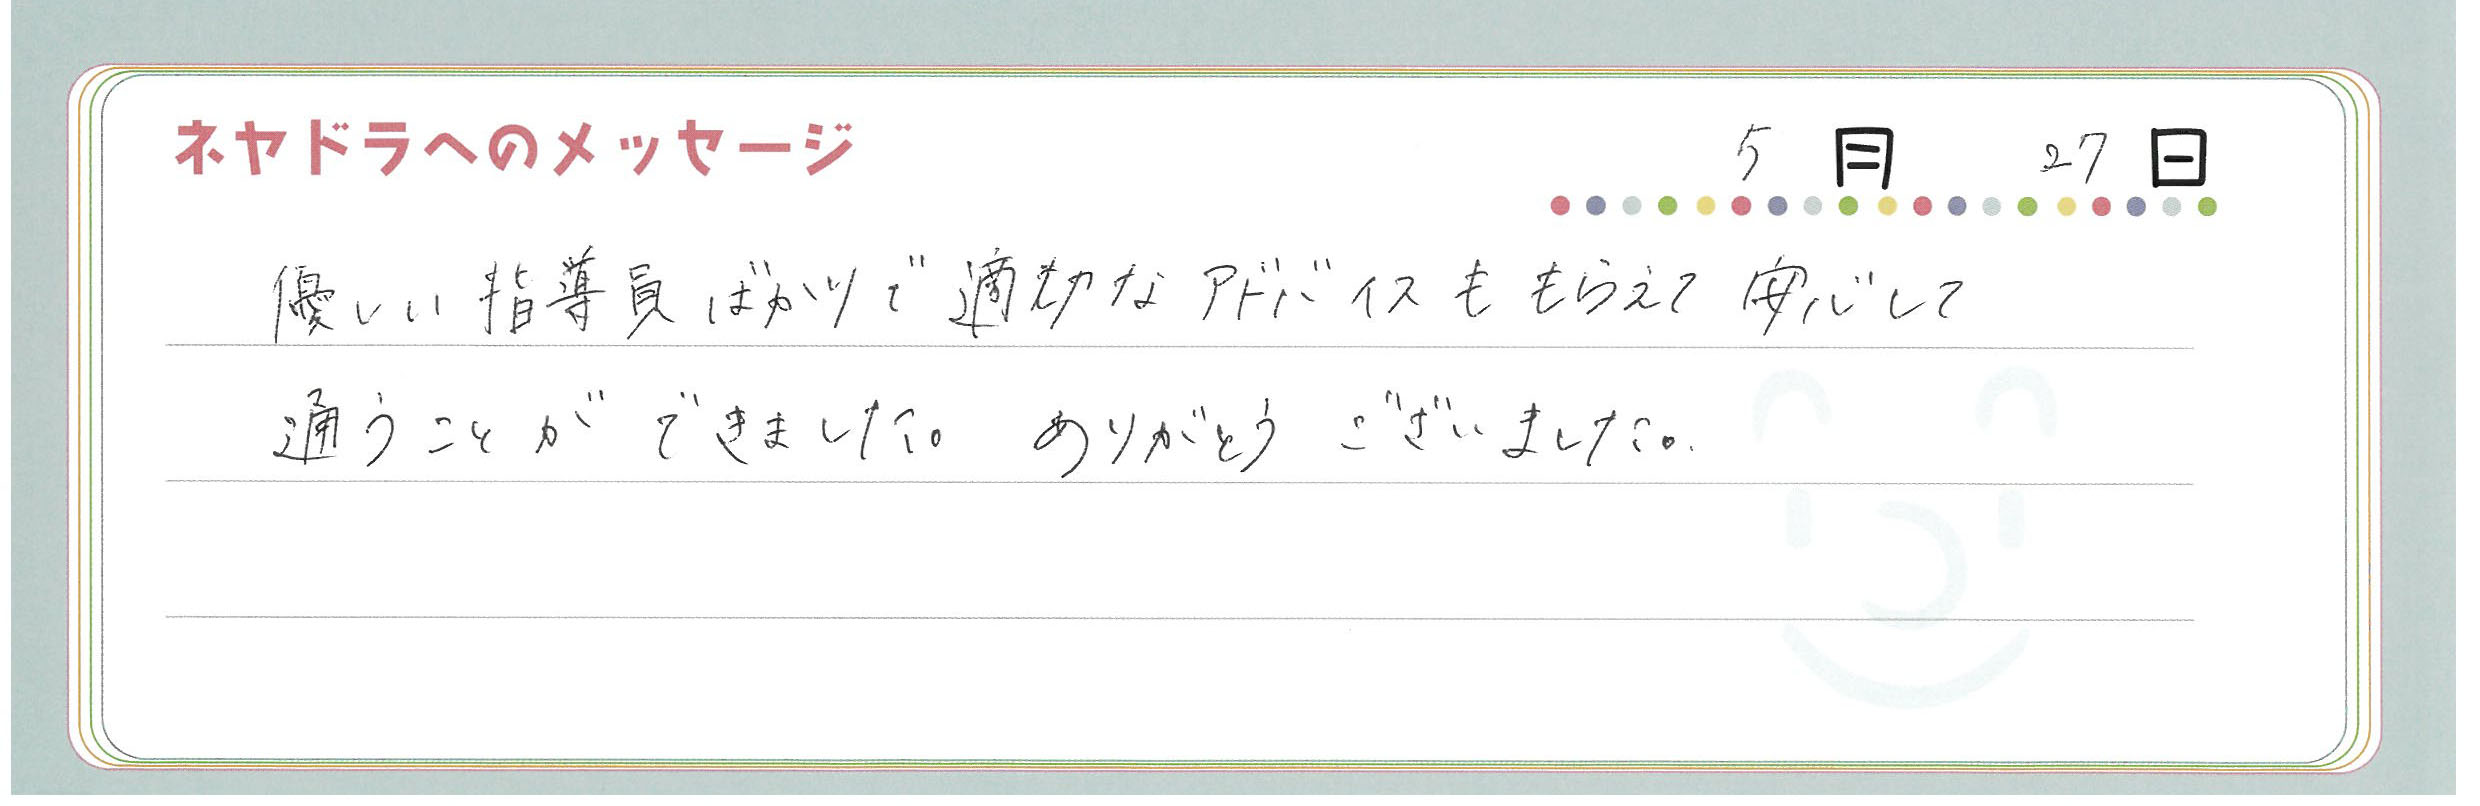 ネヤドラへのメッセージ
5月 27日
優しい指導員ばかりで適切なアドバイスももらえて安心して
通うことができました。ありがとうございました。